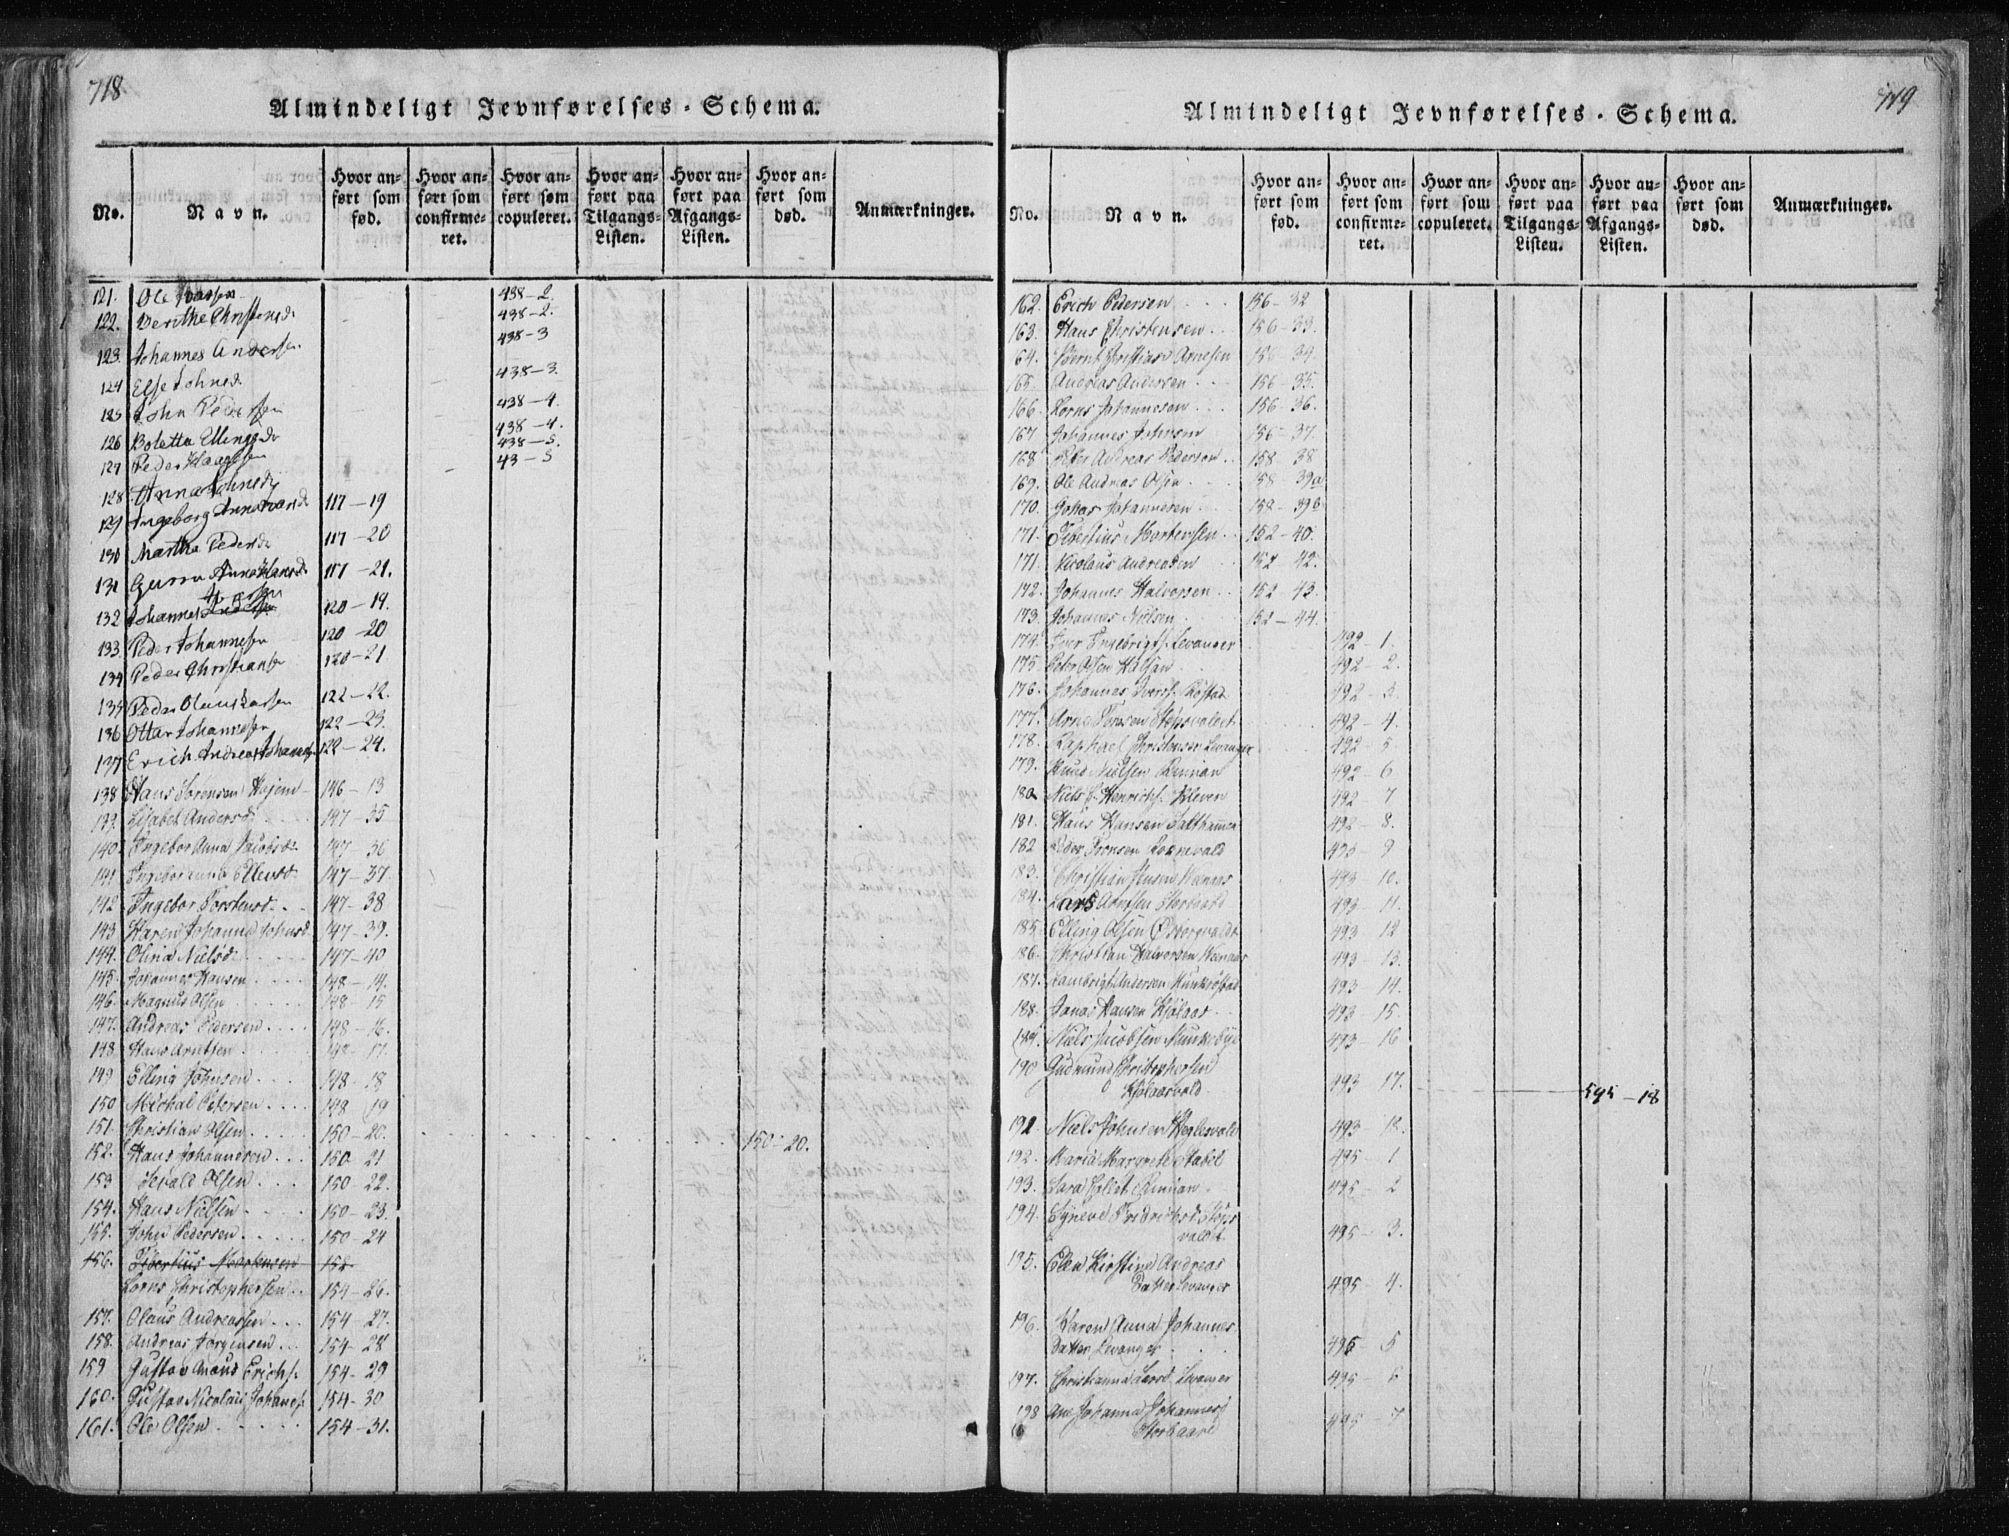 718
Almindeligt Jevnførelses-Schema.
No. Navn. Hvor anført som fød. Hvor anført som confirmeret. Hvor anført som copuleret. Hvor anført paa Tilgangs-Listen. Hvor anført paa Afgangs-Listen. Hvor anført som død. Anmærkninger.
121. Ole 438-2.
122. Berithe Christensd. 438-2.
123. Johannes Andersen 438-3
124 Else Johnsd. 438-3.
125 John Pedersen 438-4.
126 Boletta Ellingsd. 438-4.
127 Peder 438-5.
128 Anna Johnsd. 43-5
129 Ingeborg Anna 117-19
130 Martha Pedersd. 117-20
131 Anna Hansd. 117-21.
132 Johannes 120-19.
133. Peder Johannesen 120-20
134 Peder Christians. 120-21
135 Peder Olaus Larsen 122-22.
136 Ottar Johannesen 122-23.
137 Erich Andreas Johannes. 122-24.
138 Hans Sörensen Hojem 146-13
139. Lisabet Andersd. 147-35
140. Ingebor Anna Jacobsd. 147-36
141. Ingebor Anna Ellensd. 147-37.
142 Ingebor Torstensd. 147-38
143 Karen Johanna Johnsd. 147-39.
144. Olina Nielsd. 147-40
145. Johannes Hansen 148-14.
146. Magnus Olsen 148-15
147. Andreas Pedersen 148-16.
148 Hans Arntsen 148-17.
149 Elling Johnsen 148-18
150 Michal Petersen 148-19
151. Christian Olsen 150-20. 150-20.
152. Hans Johannesen 150-21
153 Sevald Olsen 150-22.
154. Hans Nielsen 150-23.
155. John Pedersen 150-24
156. Tibertius Mortensen 152
Lorns Christophersen 154-26.
157. Olaus Andreassen 154-27.
158. Andreas Jörgensen 154-28
159 Gustav Erichs. 154-29
160. Gustav Nicolai Johanes. 154-30
161. Ole Olsen 154-31.
719
Almindeligt Jevnførelses-Schema.
No. Navn. Hvor anført som fød. Hvor anført som confirmeret. Hvor anført som copuleret. Hvor anført paa Tilgangs-Listen. Hvor anført paa Afgangs-Listen. Hvor anført som død. Anmærkninger.
162. Erich Pedersen 156-32
163. Hans Christensen 156-33.
64. Bernt Christian Arnesen 156-34.
165. Andreas Andersen 156-35.
166. Lorns Johannesen 156-36.
167. Johannes 156-37.
168 Peter Andreas Pedersen 158-38
169. Ole Andreas Olsen 158-39a
170. Johannesen 158-39b
171. Tibertius Mortensen 152-40.
171. Nicolaus Andreasen 152-42.
172. Johannes Halvorsen 152-43.
173. Johannes Nielsen 152-44.
174. Iver Ingebrigts. Levanger 492-1.
175. Peter Olsen 492-2.
176. Johannes Ivers. 492-3.
177. Arne 492-4.
178. Raphael Christensen Levanger 492-5
179. Knud Nielsen 492-6
180. Niels Henrichs. Kleven 492-7
181. Hans Hansen 492-8.
182 Peder 493-9
183. Christian Jensen 493-10.
184. Lars Arntsen 493-11.
185. Elling Olsen 493-12
186. Christian Halvorsen 493-13.
187. Lambrigt Andersen Munkröstad 493-14.
188. Jonas Hansen 493-15.
189. Niels Jacobsen Munkebye 493-16
190 Gudmund Christophersen
493-17. 595-18
191. Niels Johnsen 493-18.
192. Maria Margrete Stabel 495-1
193. Sara 495-2
194. Synneve Fridrichsd.
495-3.
195. Elen Kirstine Andreas
Datter Levanger 495-4.
196. Karen Anna Johannes
Datter Levanger 495-5
197. Christianna Larsd. Levanger 495-6
198 Ane Johanna Johannesd.
495-7